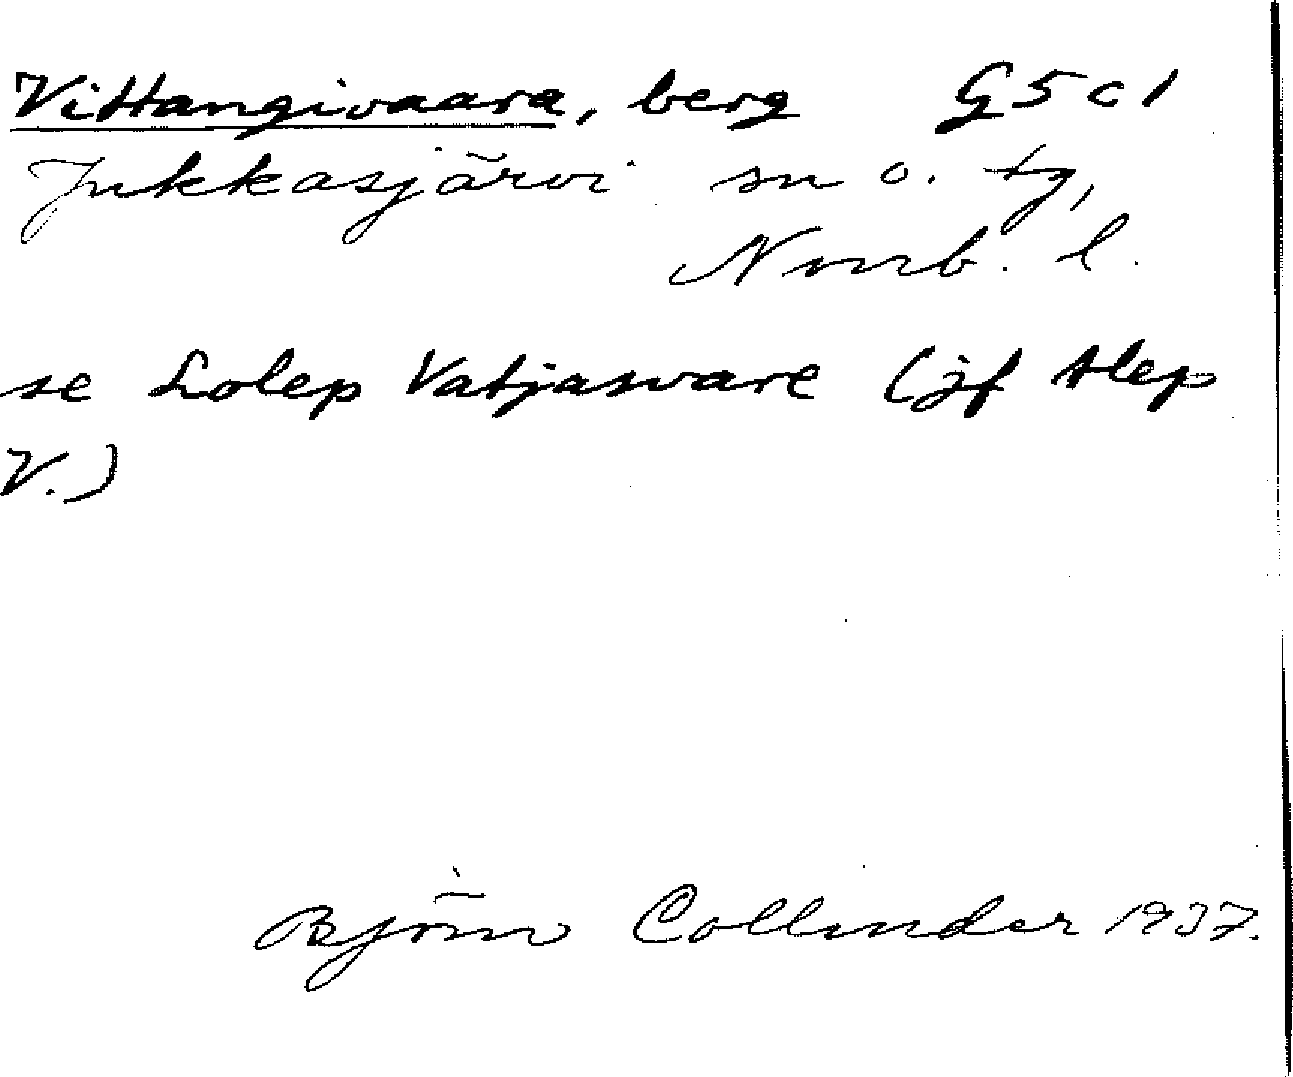 Vittangivaara, berg G5c1
Jukkasjärvi sn o. tg,
Norrb. l.
se Lolep Vatjasvare (jf Alep
V.)
Björn Collinder 1937.